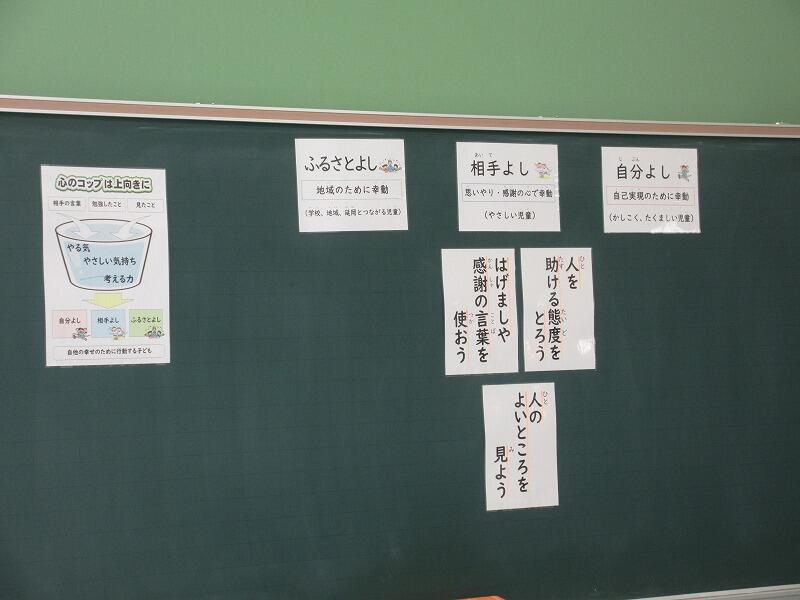 心のコップは上向きに
相手の言葉 勉強したこと 見たこと
やる気
やさしい気持ち
考える力
自分よし 相手よし ふるさとよし
自他の幸せのために行動する子ども
ふるさとよし
地域のために幸動
(学校、地域、延岡とつながる児童)
あいて
相手よし
思いやり・感謝の心で幸動
(やさしい児童)
じぶん
自分よし
自己実現のために幸動
(かしこく、たくましい児童)
ひと
人を
たす たいど
助ける態度を
とろう
はげましや
かんしゃ ことば
感謝の言葉を
つか
使おう
ひと
人の
よいところを
み
見よう